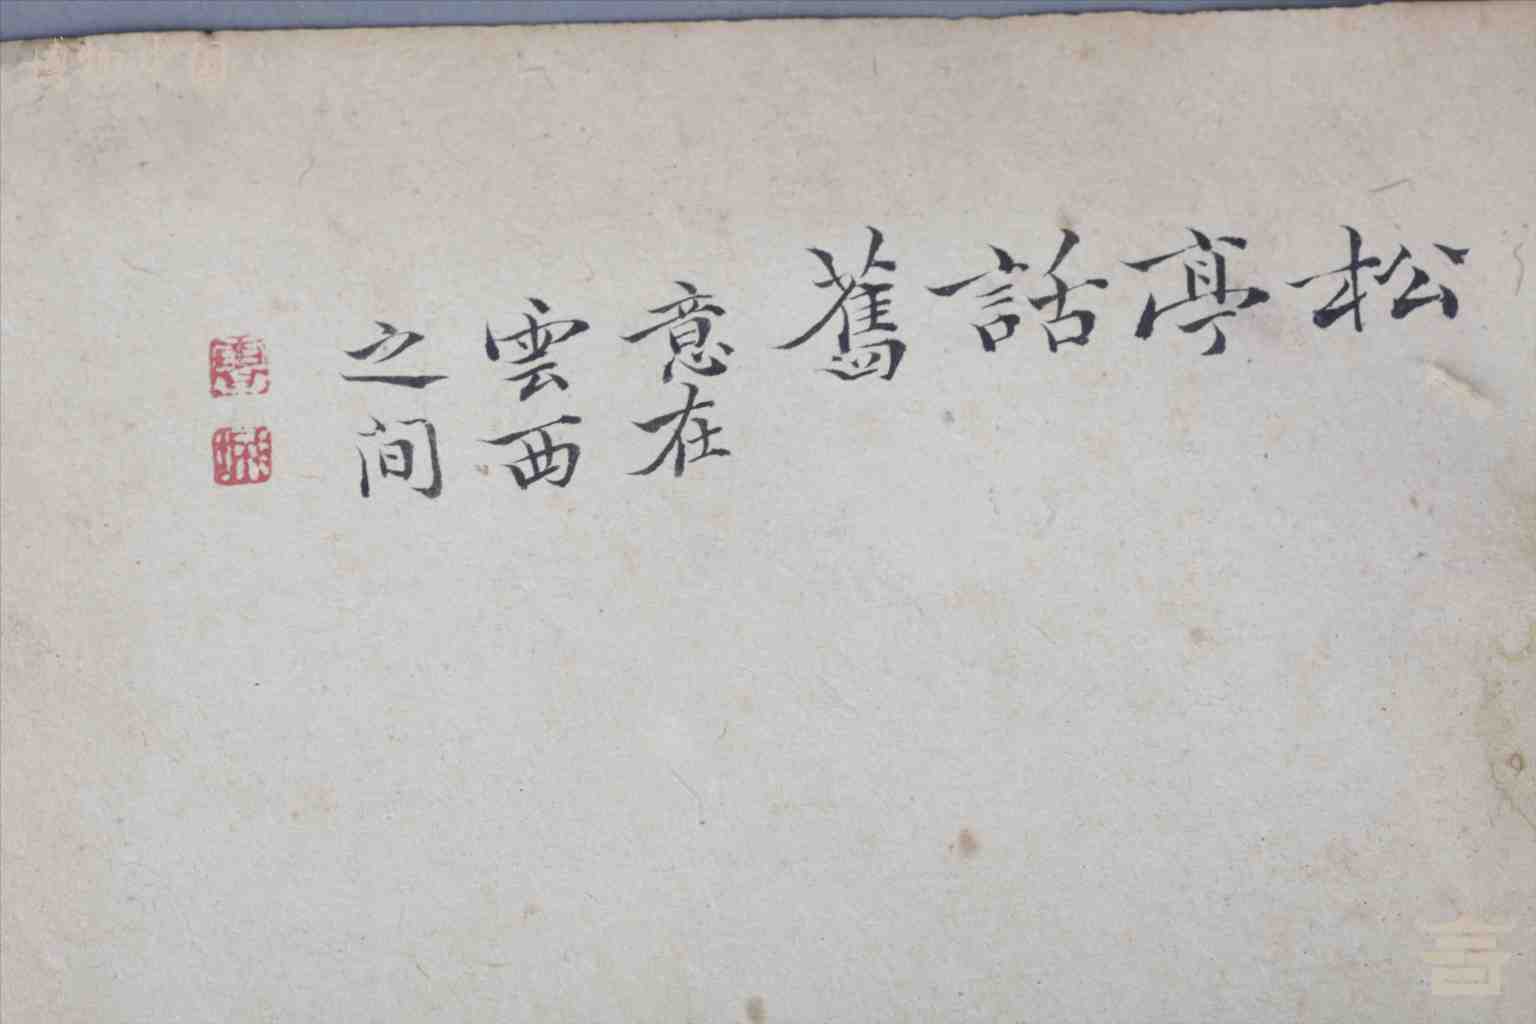 松亭話舊
意在
雲西
之间